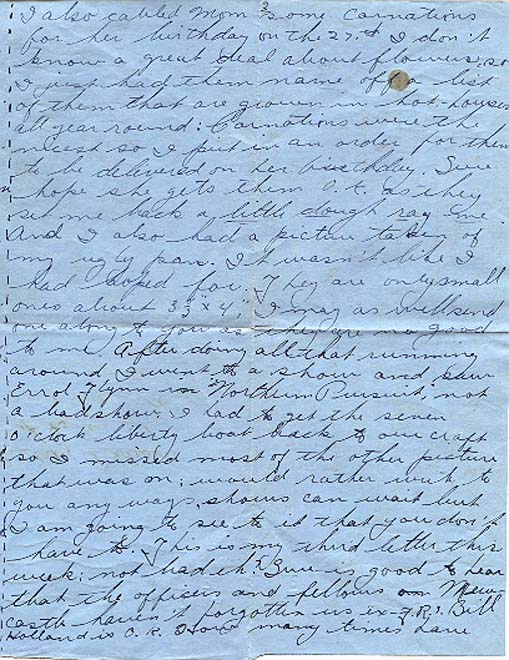 I also cabled Mom some carnations
for her birthday on the 27th I don't
know a great deal about flowers, so
I just had them name off a list
of them that are grown in hot-houses
all year round: Carnations were the
nicest so I put in an order for them
to be delivered on her birthday. Sure
hope she gets them O.K. as they
set me back a little dough
And I also had a picture taken of
my ugly pan. It wasn't like I
had hoped for. They are only small
ones about 3 1/3" x 4" I may as well send
one along to you as they are no good
to me. After doing all that running
around I went to a show and saw
Errol Flynn in "Northern Pursuit", not
a bad show. I had to get the seven
o'clock liberty boat back to our craft
so I missed most of the other picture
that was on; would rather write to
you any ways, shows can wait but
I am going to see to it that you don't
have to. This is my third letter this
week; not bad eh? Sure is good to hear
that the officers and fellows on New-
castle haven't forgotten us ex- Bill
Holland is O.K. many times have